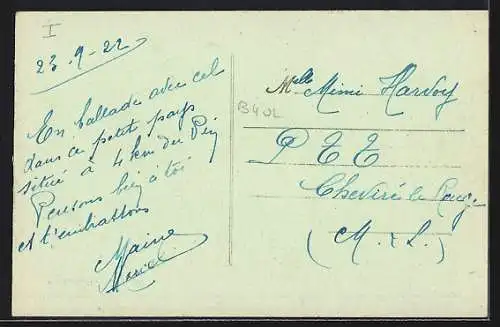 I
23-9-22
En ballade avec cel
dans ce petit pays
situé à 4 km du Pin
Pensons bien à toi
et t'embrassons
Maine
Marcel
Melle Mimi Hardoy
B402
P T T
Cheviré le Rouge
(M.&L.)